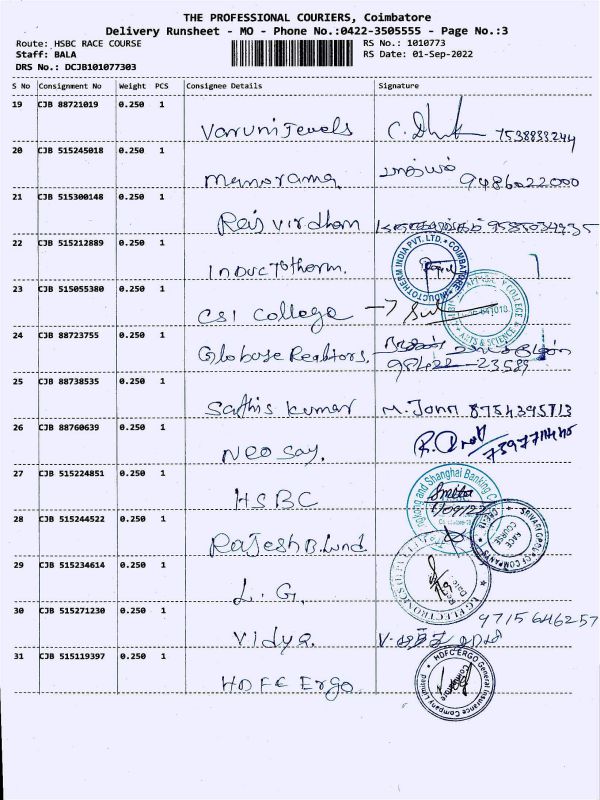 THE PROFESSIONAL COURIERS, Coimbatore
Delivery Runsheet - MO - Phone No.:0422-3505555 - Page No.:3
Route: HSBC RACE COURSE RS No.: 1010773
Staff: BALA RS Date: 01-Sep-2022
DRS No.: DCJB101077303
S No Consignment No Weight PCS Consignee Details Signature
19 CJB 88721019 0.250 1
Varuni Jewels 7538833244
20 CJB 515245018 0.250 1
Manorama. 9486022000
21 CJB 515300148 0.250 1
Raj virdham
22 CJB 515212889 0.250 1
Inductotherm. INDUCTOTHERM INDIA PVT. LTD. COIMBATORE
23 CJB 515055380 0.250 1
CSI College → COLLEGE ARTS & SCIENCE 641018
24 CJB 88723755 0.250 1
Globuse Realtors. 98422-23589
25 CJB 88738535 0.250 1
Sathis kumar M. John 8754395713
26 CJB 88760639 0.250 1
Neo Say.
27 CJB 515224851 0.250 1
HSBC Hongkong and Shanghai Banking
28 CJB 515244522 0.250 1
Rajesh B. Lund SRIVARI GROUP OF COMPANIES RACE COURSE
29 CJB 515234614 0.250 1
L.G. LG ELECTRONICS
30 CJB 515271230 0.250 1
Vidya. 9715646257
31 CJB 515119397 0.250 1
HDFC Ergo HDFC ERGO General Insurance Company Limited